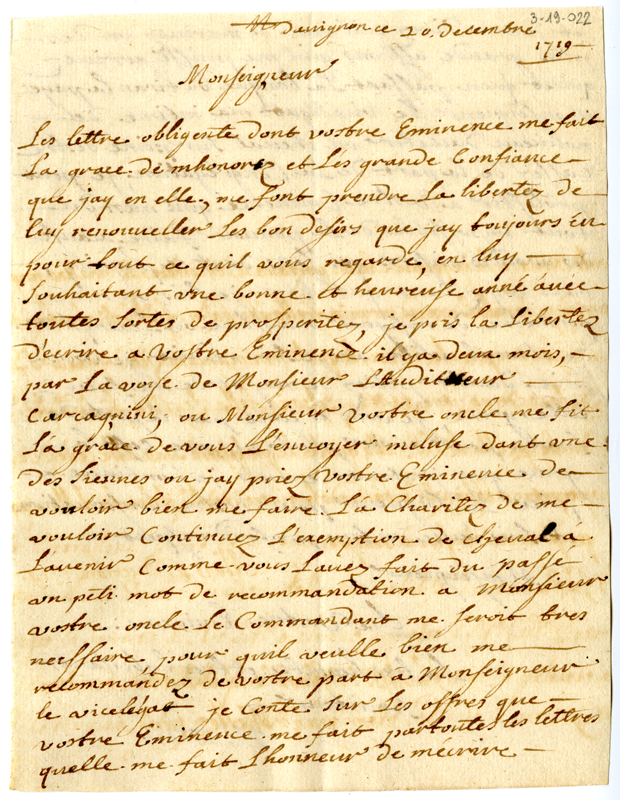 3-19-022
Davignon ce 20. Decembre
1719
Monseigneur
Les lettre obligente dont vostre Eminence me fait
La grace de mhonorez et Les grande Confiance
que jay en elle, me font prendre La libertez de
luy renouueller Les bon desirs que jay toujours Eu
pour tout ce quil vous regarde, en luy
souhaitant vne bonne et heureuse anné auec
toutes sortes de prosperitez, je pris la Libertez
d'ecrire a Vostre Eminence il ya deux mois,
par La voye de Monsieur L'Auditeur
Carcagnini, ou Monsieur vostre oncle me fit
La grace de vous L'enuoyer incluse dant vne
des siennes ou jay priez Vostre Eminence de
vouloir bien me faire La Charitez de me
vouloir Continuez L'exemption de cheval à
L'avenir Comme vous Lauez fait du passé
vn peti mot de recommandation a Monsieur
vostre oncle Le Commandant me seroit tres
nessaire, pour quil veulle bien me
recommandez de vostre part a Monseigneur
le vicelegat je Conte sur Les offres que
vostre Eminence me fait partoutes les lettres
quelle me fait L'honneur de mecrire